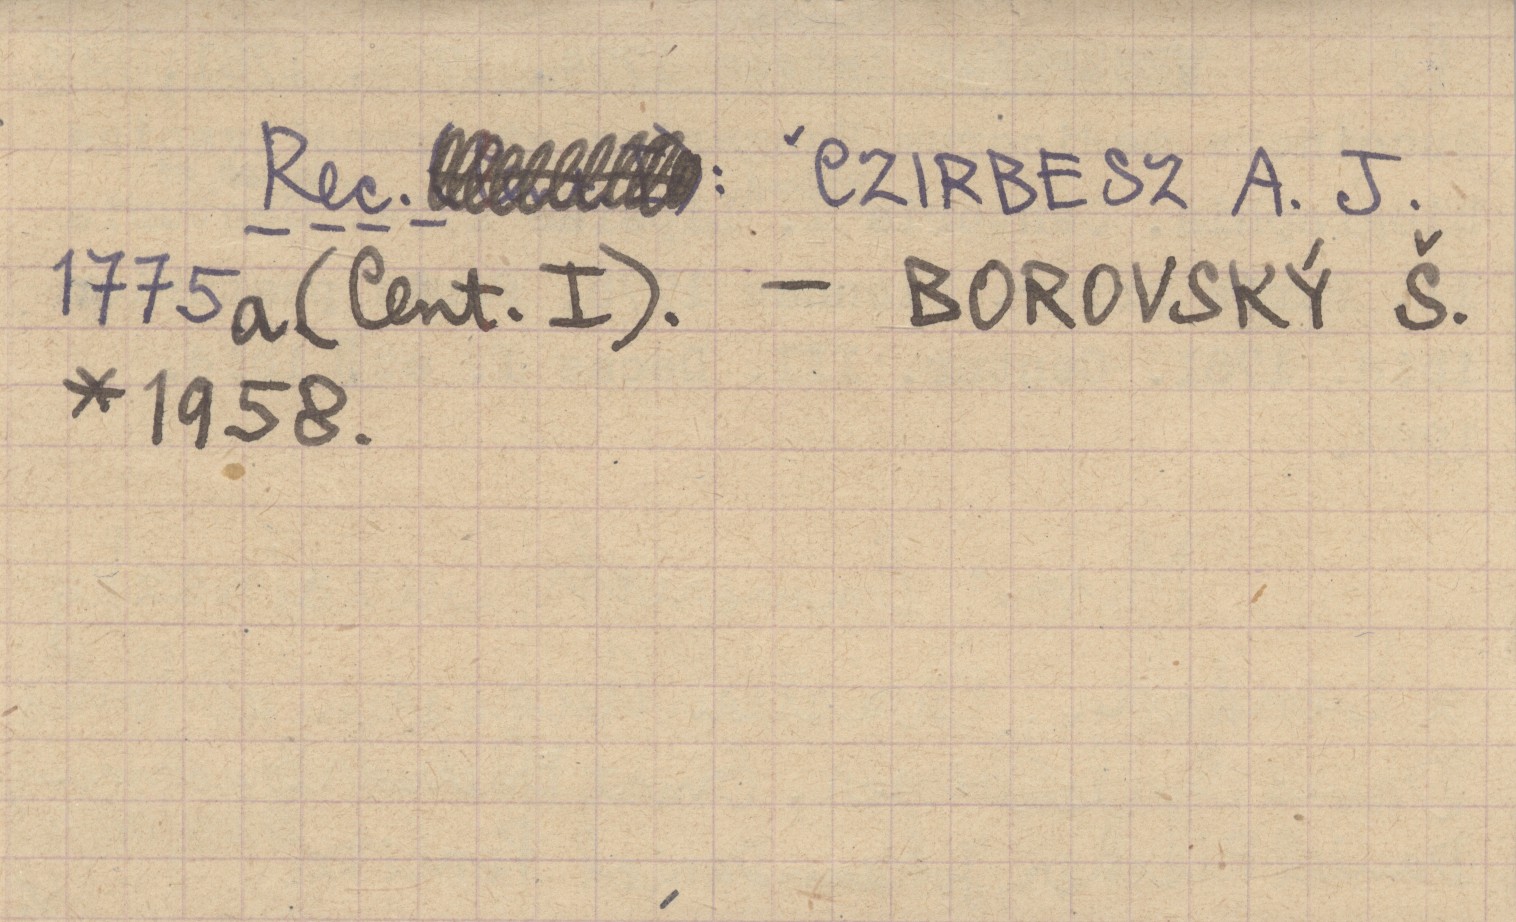 Rec. : CZIRBESZ A. J.
1775a (Cent. I). — BOROVSKÝ Š.
*1958.